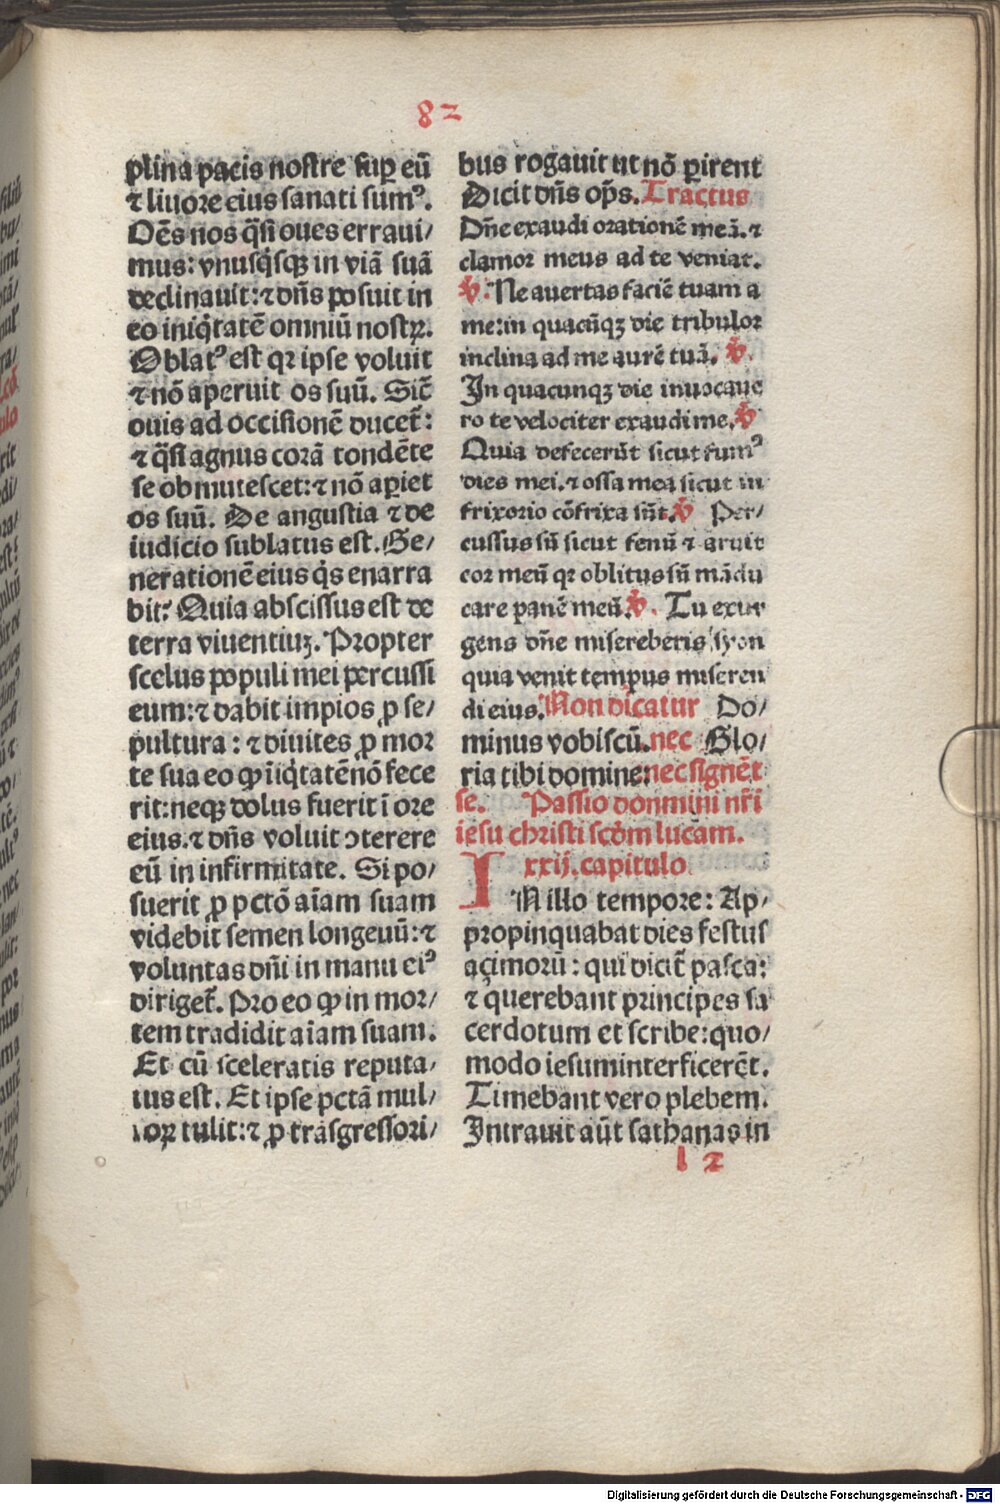 82
plina pacis nostre sup̱ eū
⁊ liuore eius sanati sumꝰ.
Oēs nos q̄si oues erraui/
mus: vnusq̄sqꝫ in viā suā
declinauit: ⁊ dn̄s posuit in
eo iniq̄tatē omniū nostrꝝ.
Oblatꝰ est qꝛ ipse voluit
⁊ nō aperuit os suū. Sic̄
ouis ad occisionē ducet̄:
⁊ q̄si agnus corā tondēte
se obmutescet: ⁊ nō aꝑiet
os suū. De angustia ⁊ de
iudicio sublatus est. Ge/
nerationē eius q̇s enarra
bit? Quia abscissus est de
terra viuentiuꝫ. Propter
scelus populi mei percussi
eum: ⁊ dabit impios ꝓ se/
pultura: ⁊ diuites ꝓ mor
te sua eo ꝙ īiq̇tatē nō fece
rit: neqꝫ dolus fuerit ī ore
eius. ⁊ dn̄s voluit ꝯterere
eū in infirmitate. Si po/
suerit ꝓ pctō aīam suam
videbit semen longeuū: ⁊
voluntas dn̄i in manu eiꝰ
diriget̄. Pro eo ꝙ in mor/
tem tradidit aīam suam.
Et cū sceleratis reputa/
tus est. Et ipse pctā mul/
torꝝ tulit: ⁊ ꝓ trāsgressori/
bus rogauit ut nō ꝑirent
Dicit dn̄s op̄s. Tractus
Dn̄e exaudi orationē meā. ⁊
clamor meus ad te veniat.
℣. Ne auertas faciē tuam a
me: in quacūqꝫ die tribulor
inclina ad me aurē tuā. ℣.
In quacunqꝫ die inuocaue
ro te velociter exaudi me. ℣
Quia defecerūt sicut fumꝰ
dies mei. ⁊ ossa mea sicut in
frixorio cōfrixa sūt. ℣ Per/
cussus sū sicut fenū ⁊ aruit
cor meū qꝛ oblitus sū mādu
care panē meū. ℣. Tu exur
gens dn̄e misereberis syon
quia venit tempus miseren
di eius. Non dicatur Do/
minus vobiscū. nec Glo/
ria tibi domine: nec signēt
se. Passio donmini nr̄i
iesu christi scd̄m lucam.
xxij. capitulo.
IN illo tempore: Ap/
propinquabat dies festus
açimorū: qui dicit̄ pasca:
⁊ querebant principes sa
cerdotum et scribe: quo/
modo iesum interficerēt.
Timebant vero plebem.
Intrauit aūt sathanas in
l 2
Digitalisierung gefördert durch die Deutsche Forschungsgemeinschaft - DFG